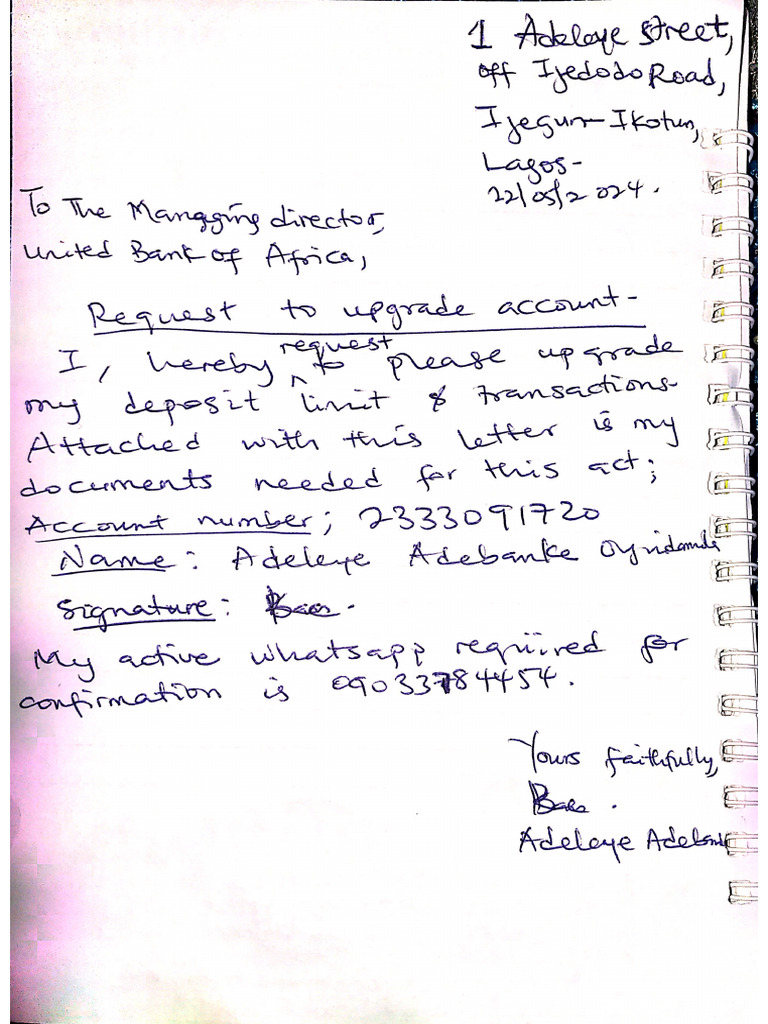 1 Adeleye street,
off Ijedodo Road,
Ijegun-Ikotun,
Lagos-
22/05/2024.
To The Managging director,
United Bank of Africa,
Request to upgrade account-
I, hereby request to please upgrade
my deposit limit & transactions-
Attached with this letter is my
documents needed for this act;
Account number; 2333091720
Name: Adeleye Adebanke
Signature:
My active whatsapp requiired for
confirmation is 09033784454.
Yours faithfully,
Adeleye